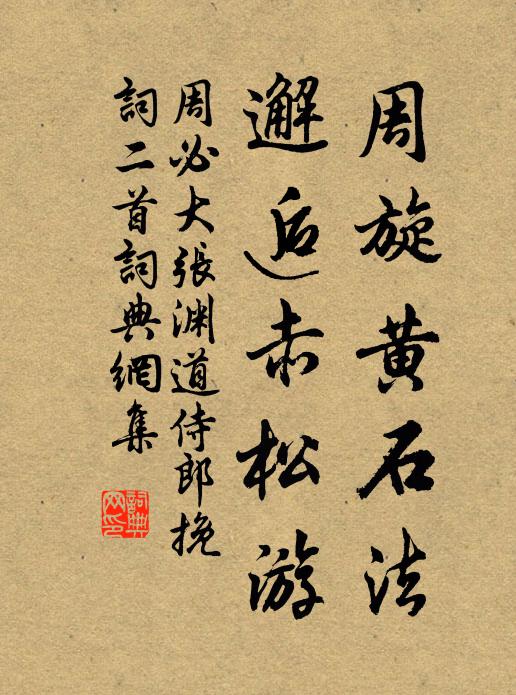 周旋黄石法
邂逅赤松游
周必大張淵道侍郎挽
詞二首詞典網集
詞典网印